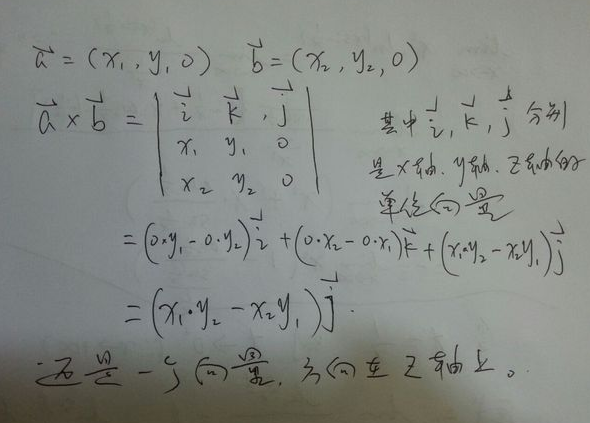 a⃗ = (x₁, y₁, 0)  b⃗ = (x₂, y₂, 0)
a⃗ × b⃗ = | i⃗ k⃗, j⃗ |
| x₁ y₁ 0 |
| x₂ y₂ 0 |
其中 i⃗, k⃗, j⃗ 分别
是x轴、y轴、z轴的
单位向量
= (0·y₁ - 0·y₂) i⃗ + (0·x₂ - 0·x₁) k⃗ + (x₁·y₂ - x₂y₁) j⃗
= (x₁·y₂ - x₂y₁) j⃗.
还是一个向量,方向在Z轴上。